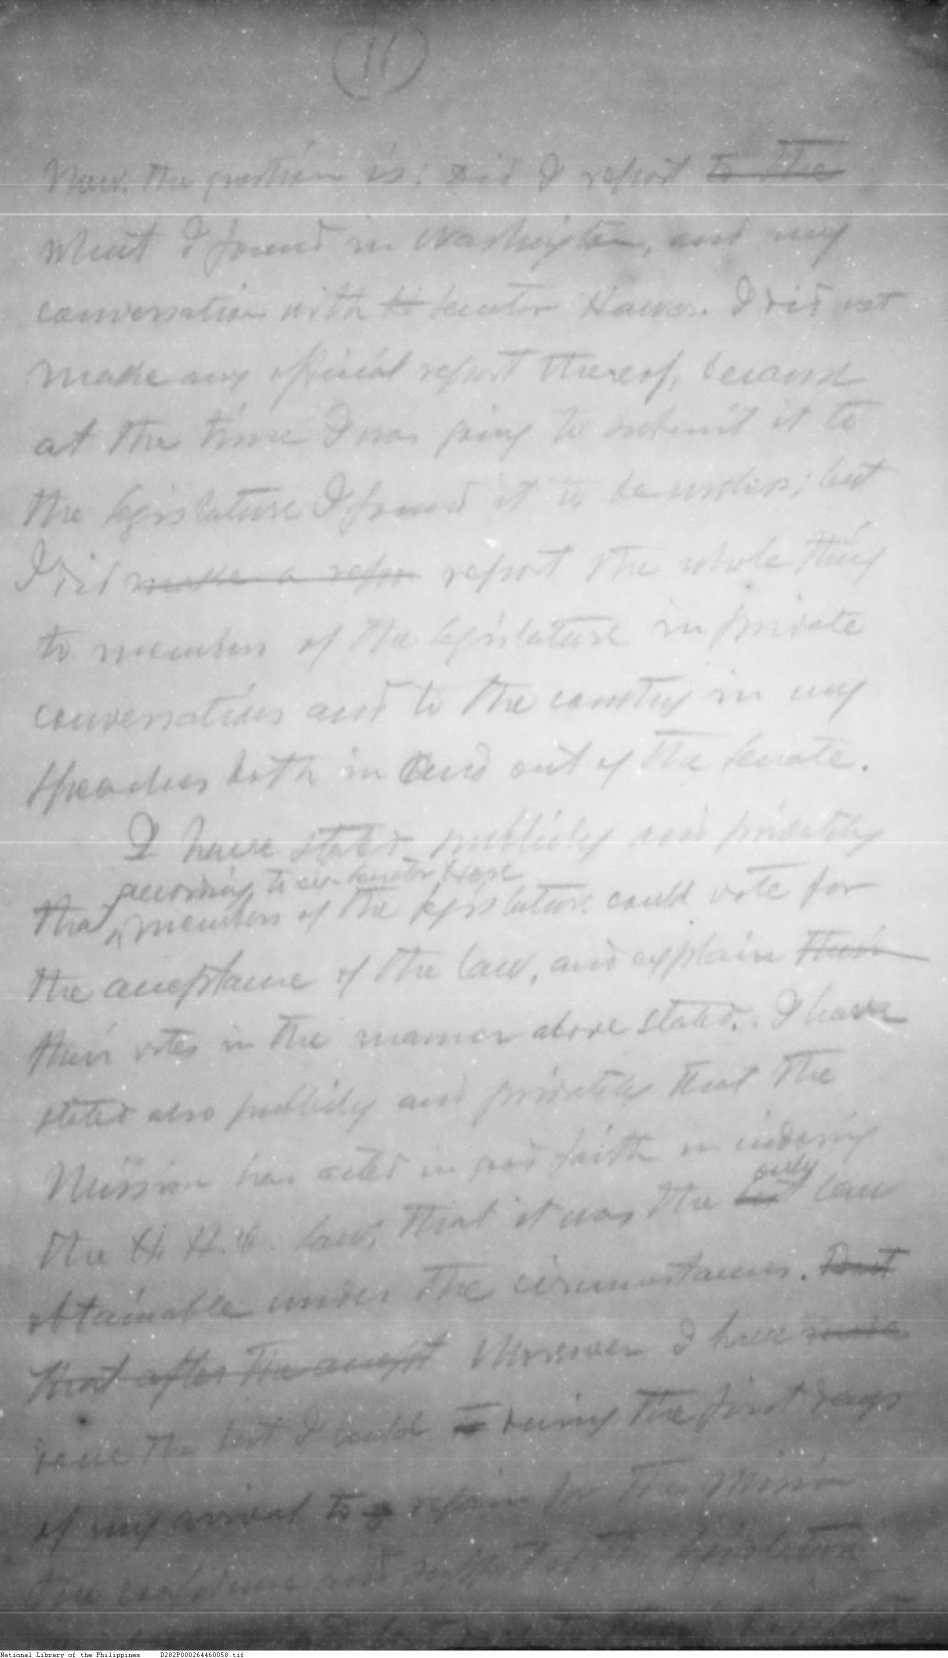 (11)
Now, the question is: Did I report to the
what I found in Washington, and my
conversation with Senator Hawes. I did not
make any official report thereof, because
at the time I was going to submit it to
the legislature I found it to be useless; but
I did make a repor report the whole thing
to members of the legislature in private
conversations and to the country in my
speeches both in and out of the Senate.
I have stated publicly and privately
according to
that members of the legislature could vote for
the acceptance of the law, and explain their
their votes in the manner above stated. I have
stated also publicly and privately that the
Mission has acted in good faith in
only
the H. H. C. law, that it was the law
obtainable under the circumstances. But
that after the accept Moreover I have made
done the best I could during the first days
of my arrival to for the Mission
the confidence and support of the legislature
National Library of the Philippines D282P000264460058.tif